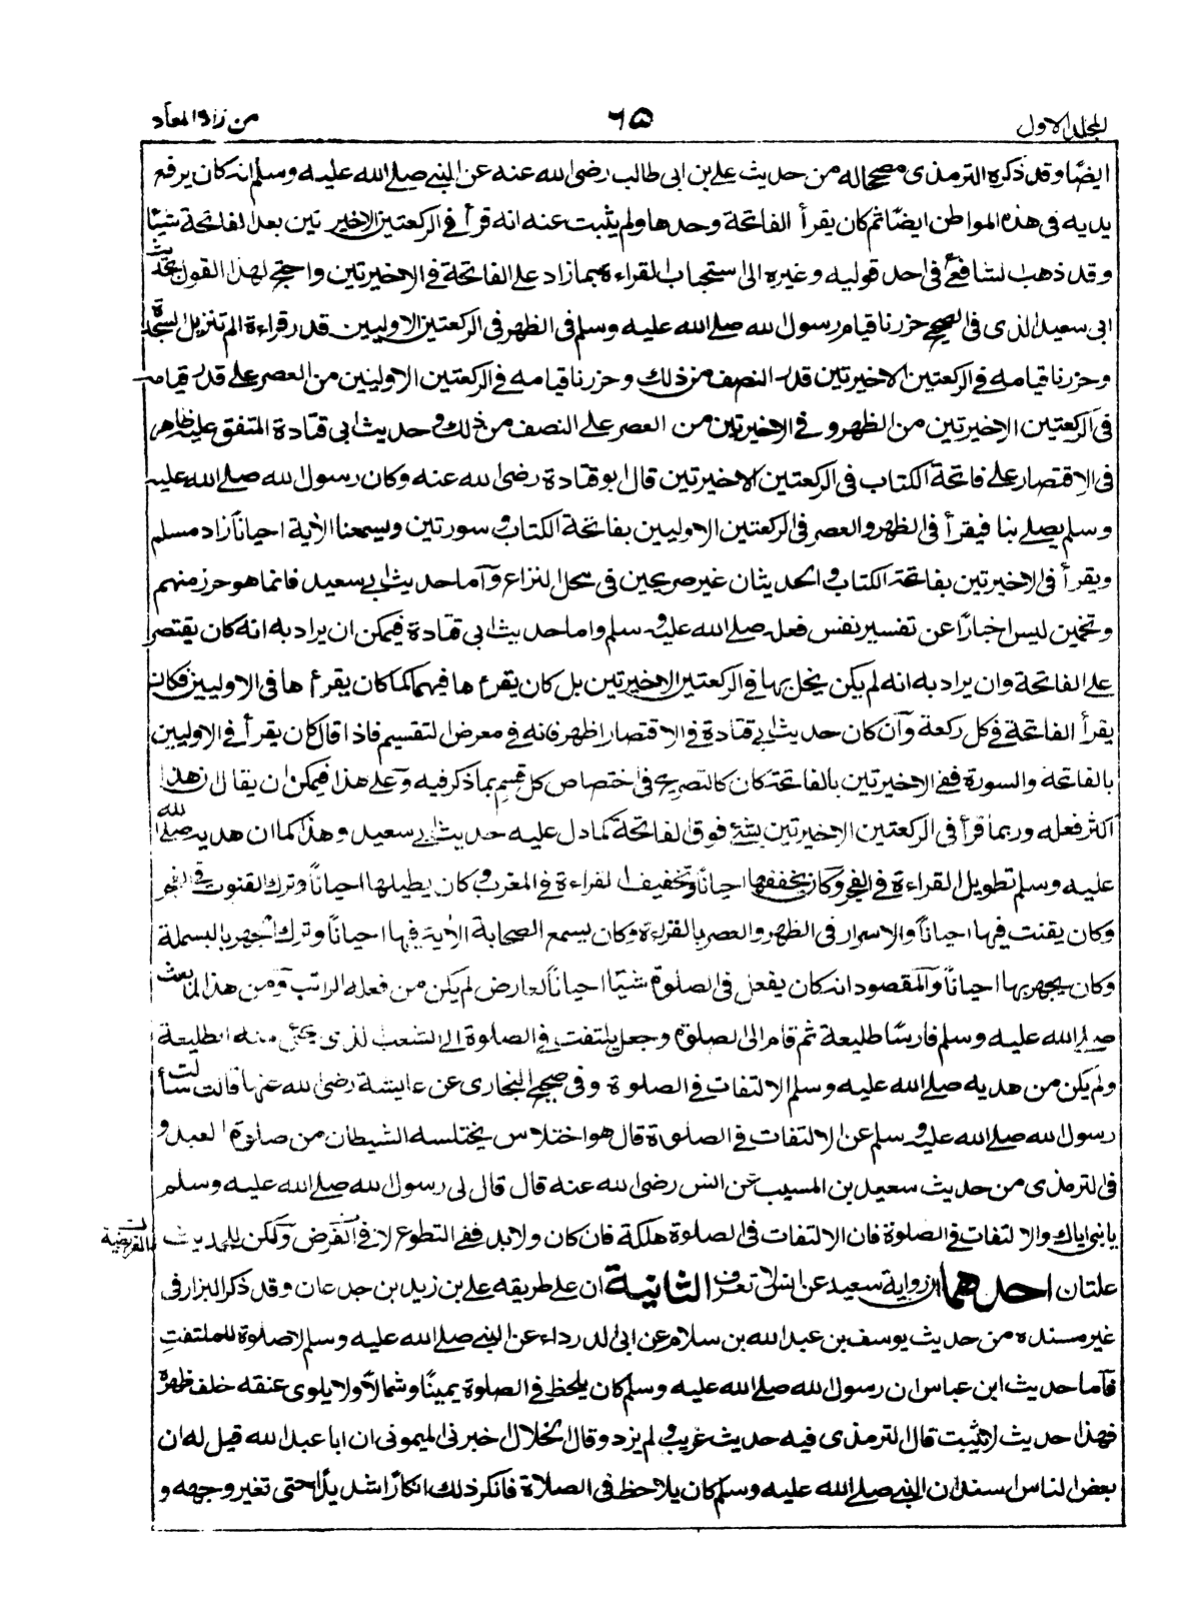 المجلد الاول
٦٥
من زاد المعاد
ايضا وقد ذكره الترمذى مصححا له من حديث على بن ابى طالب رضى الله عنه عن النبى صلى الله عليه وسلم انه كان يرفع
يديه فى هذه المواطن ايضا ثم كان يقرأ الفاتحة وحدها ولم يثبت عنه انه قرأ فى الركعتين الاخيرتين بعد الفاتحة شيئا
وقد ذهب الشافعى فى احد قوليه وغيره الى استحباب القراءة بما زاد على الفاتحة فى الاخيرتين واحتج لهذا القول بحديث
ابى سعيد الذى فى الصحيح حزرنا قيام رسول الله صلى الله عليه وسلم فى الظهر فى الركعتين الاوليين قدر قراءة الم تنزيل السجدة
وحزرنا قيامه فى الركعتين الاخيرتين قدر النصف من ذلك وحزرنا قيامه فى الركعتين الاوليين من العصر على قدر قيامه
فى الركعتين الاخيرتين من الظهر وفى الاخيرتين من العصر على النصف من ذلك وحديث ابى قتادة المتفق عليه ظاهر
فى الاقتصار على فاتحة الكتاب فى الركعتين الاخيرتين قال ابو قتادة رضى الله عنه وكان رسول الله صلى الله عليه
وسلم يصلى بنا فيقرأ فى الظهر والعصر فى الركعتين الاوليين بفاتحة الكتاب وسورتين ويسمعنا الأية احيانا زاد مسلم
ويقرأ فى الاخيرتين بفاتحة الكتاب والحديثان غير صريحين فى محل النزاع وآما حديث ابى سعيد فانما هو حرز منهم
وتخمين ليس اخبارا عن تفسير نفس فعله صلى الله عليه وسلم واما حديث ابى قتادة فيمكن ان يراد به انه كان يقتصر
على الفاتحة وان يراد به انه لم يكن يخل بها فى الركعتين الاخيرتين بل كان يقرءها فيهما كما كان يقرءها فى الاوليين فكان
يقرأ الفاتحة فى كل ركعة وآن كان حديث ابى قتادة فى الاقتصار اظهر فانه فى معرض التقسيم فاذا قال كان يقرأ فى الاوليين
بالفاتحة والسورة ففى الاخيرتين بالفاتحة كان كالتصريح فى اختصاص كل قسم بما ذكر فيه وعلى هذا فيمكن ان يقال ان هذا
اكثر فعله وربما قرأ فى الركعتين الاخيرتين بشئ فوق الفاتحة كما دل عليه حديث ابى سعيد وهذا كما ان هديه صلى الله
عليه وسلم تطويل القراءة فى الفجر وكان يخففها احيانا وتخفيف القراءة فى المغرب وكان يطيلها احيانا وترك القنوت فى الفجر
وكان يقنت فيها احيانا والاسرار فى الظهر والعصر بالقراءة وكان يسمع الصحابة الأية فيها احيانا وترك الجهر بالبسملة
وكان يجهر بها احيانا وآلمقصود انه كان يفعل فى الصلوة شيئا احيانا لعارض لم يكن من فعله الراتب وّمن هذا لما بعث
صلى الله عليه وسلم فارسا طليعة ثم قام الى الصلوة وجعل يلتفت فى الصلوة الى الشعب الذى يجئ منه الطليعة
ولم يكن من هديه صلى الله عليه وسلم الالتفات فى الصلوة وفى صحيح البخارى عن عايشة رضى الله عنها قالت سألت
رسول الله صلى الله عليه وسلم عن الالتفات فى الصلوة قال هو اختلاس يختلسه الشيطان من صلوة العبد و
فى الترمذى من حديث سعيد بن المسيب عن انس رضى الله عنه قال قال لى رسول الله صلى الله عليه وسلم
يا بنى اياك والالتفات فى الصلوة فان الالتفات فى الصلوة هلكة فان كان ولا بد ففى التطوع لا فى الفرض وآلكن للحديث
علتان احدهما ان رواية سعيد عن انس لا تعرف الثانية ان على طريقه على بن زيد بن جدعان وقد ذكر البزار فى
غير مسنده من حديث يوسف بن عبد الله بن سلام عن ابى الدرداء عن النبى صلى الله عليه وسلم لا صلوة للملتفت
فآما حديث ابن عباس ان رسول الله صلى الله عليه وسلم كان يلحظ فى الصلوة يمينا وشمالا ولا يلوى عنقه خلف ظهره
فهذا حديث لا يثبت قال الترمذى فيه حديث غريب ولم يزد وقال الخلال اخبرنى الميمونى ان ابا عبد الله قيل له ان
بعض الناس اسند ان النبى صلى الله عليه وسلم كان يلاحظ فى الصلاة فانكر ذلك انكارا شديدا حتى تغير وجهه و